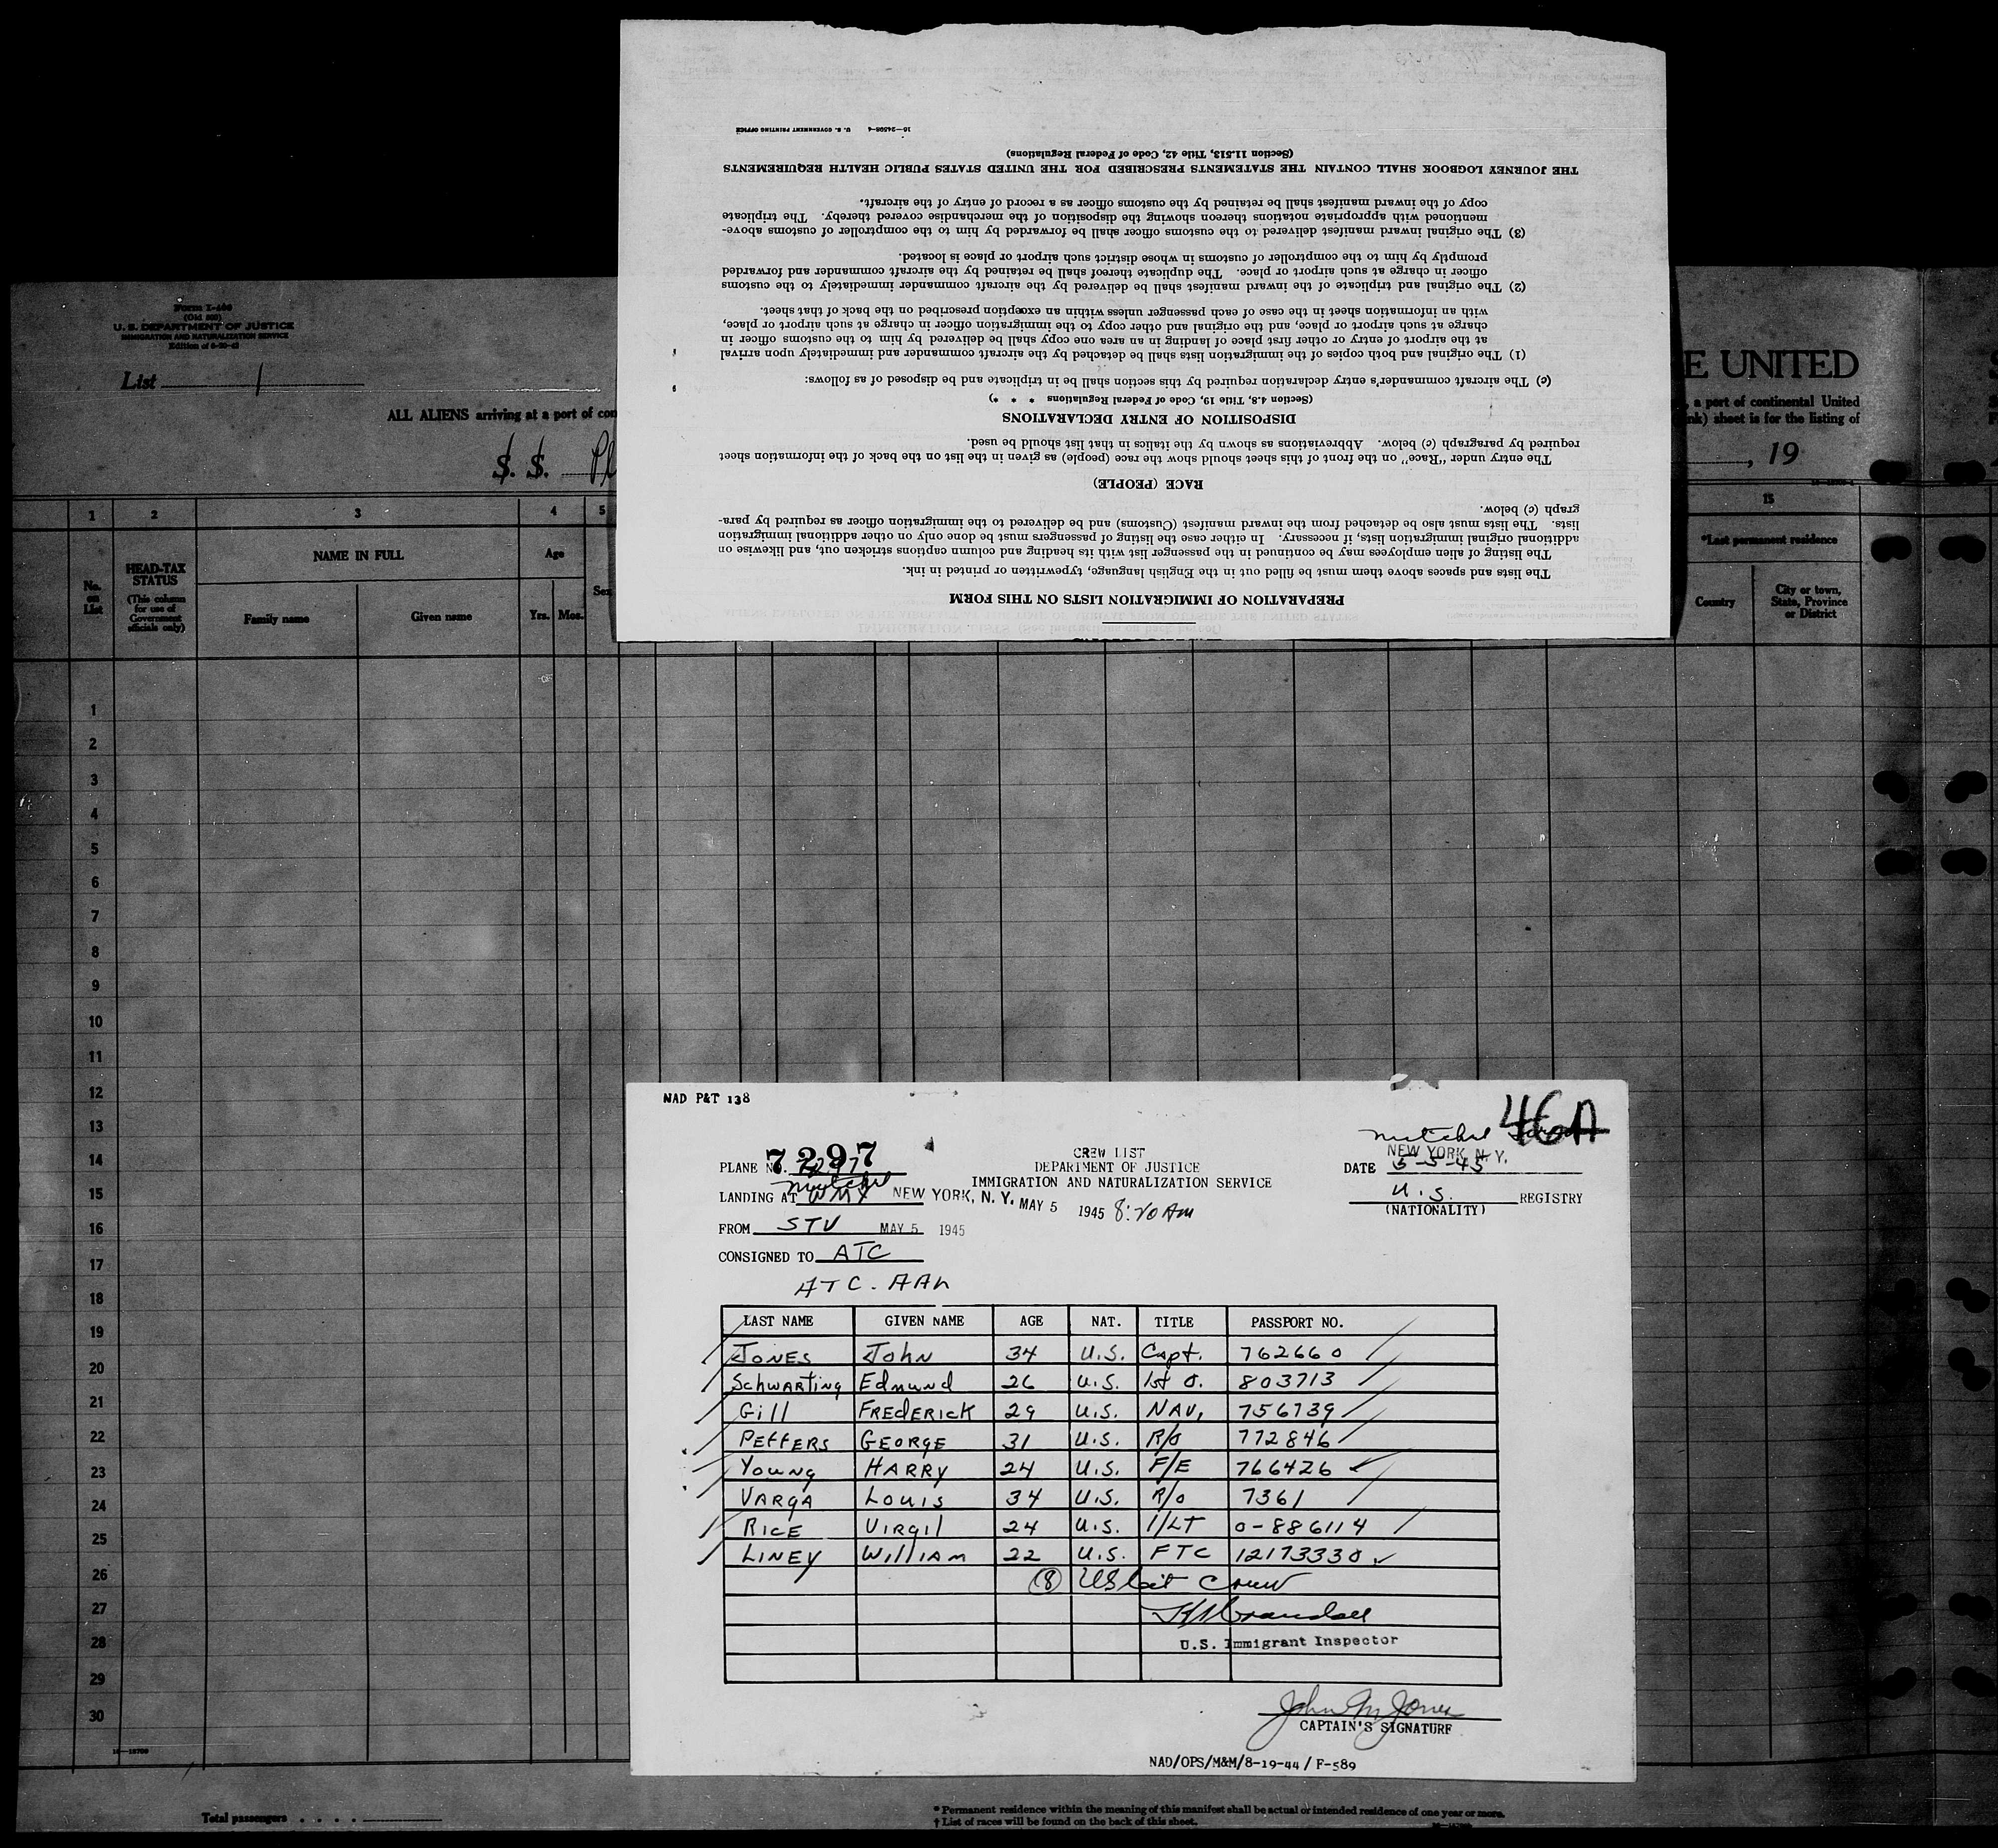 16—24598-4 U. S. GOVERNMENT PRINTING OFFICE
(Section 11.513, Title 42, Code of Federal Regulations)
THE JOURNEY LOGBOOK SHALL CONTAIN THE STATEMENTS PRESCRIBED FOR THE UNITED STATES PUBLIC HEALTH REQUIREMENTS
copy of the inward manifest shall be retained by the customs officer as a record of entry of the aircraft.
mentioned with appropriate notations thereon showing the disposition of the merchandise covered thereby. The triplicate
(3) The original inward manifest delivered to the customs officer shall be forwarded by him to the comptroller of customs above-
promptly by him to the comptroller of customs in whose district such airport or place is located.
officer in charge at such airport or place. The duplicate thereof shall be retained by the aircraft commander and forwarded
(2) The original and triplicate of the inward manifest shall be delivered by the aircraft commander immediately to the customs
with an information sheet in the case of each passenger unless within an exception prescribed on the back of that sheet.
charge at such airport or place, and the original and other copy to the immigration officer in charge at such airport or place,
at the airport of entry or other first place of landing in an area one copy shall be delivered by him to the customs officer in
(1) The original and both copies of the immigration lists shall be detached by the aircraft commander and immediately upon arrival
(c) The aircraft commander's entry declaration required by this section shall be in triplicate and be disposed of as follows:
(Section 4.8, Title 19, Code of Federal Regulations * * *)
DISPOSITION OF ENTRY DECLARATIONS
required by paragraph (c) below. Abbreviations as shown by the italics in that list should be used.
The entry under "Race" on the front of this sheet should show the race (people) as given in the list on the back of the information sheet
RACE (PEOPLE)
graph (c) below.
lists. The lists must also be detached from the inward manifest (Customs) and be delivered to the immigration officer as required by para-
additional original immigration lists, if necessary. In either case the listing of passengers must be done only on other additional immigration
The listing of alien employees may be continued in the passenger list with its heading and column captions stricken out, and likewise on
The lists and spaces above them must be filled out in the English language, typewritten or printed in ink.
PREPARATION OF IMMIGRATION LISTS ON THIS FORM
Form I-400
(Old 500)
U. S. DEPARTMENT OF JUSTICE
IMMIGRATION AND NATURALIZATION SERVICE
List 1
E UNITED
ALL ALIENS arriving at a port of con
, a port of continental United
nk) sheet is for the listing of
S. S. Pl
, 19
1 2 3 4 5 15
No. on List
HEAD-TAX STATUS
(This column for use of Government officials only)
NAME IN FULL
Family name Given name
Age
Yrs. Mos.
Sex
*Last permanent residence
Country
City or town, State, Province or District
1
2
3
4
5
6
7
8
9
10
11
12
13
14
15
16
17
18
19
20
21
22
23
24
25
26
27
28
29
30
Total passengers . . . .
* Permanent residence within the meaning of this manifest shall be actual or intended residence of one year or more.
† List of races will be found on the back of this sheet.
NAD P&T 138
46A
Mitchel
NEW YORK, N. Y.
CREW LIST
DEPARTMENT OF JUSTICE
IMMIGRATION AND NATURALIZATION SERVICE
PLANE NO. 7297
DATE 5-5-45
LANDING AT Mitchel NEW YORK, N. Y. MAY 5 1945 8:20 AM
U.S. REGISTRY
(NATIONALITY)
FROM STV MAY 5 1945
CONSIGNED TO ATC
ATC. AAL
LAST NAME GIVEN NAME AGE NAT. TITLE PASSPORT NO.
JONES John 34 U.S. Capt. 762660
Schwarting Edmund 26 U.S. 1st O. 803713
Gill FREDERICK 29 U.S. NAV. 756739
PEFFERS GEORGE 31 U.S. R/O 772846
Young HARRY 24 U.S. F/E 766426
VARGA Louis 34 U.S. R/O 7361
RICE VIRgil 24 U.S. 1/LT 0-886114
LINEY William 22 U.S. FTC 12173330
(8) US cit Crew
U.S. Immigrant Inspector
John M Jones
CAPTAIN'S SIGNATURE
NAD/OPS/M&M/8-19-44/ F-589